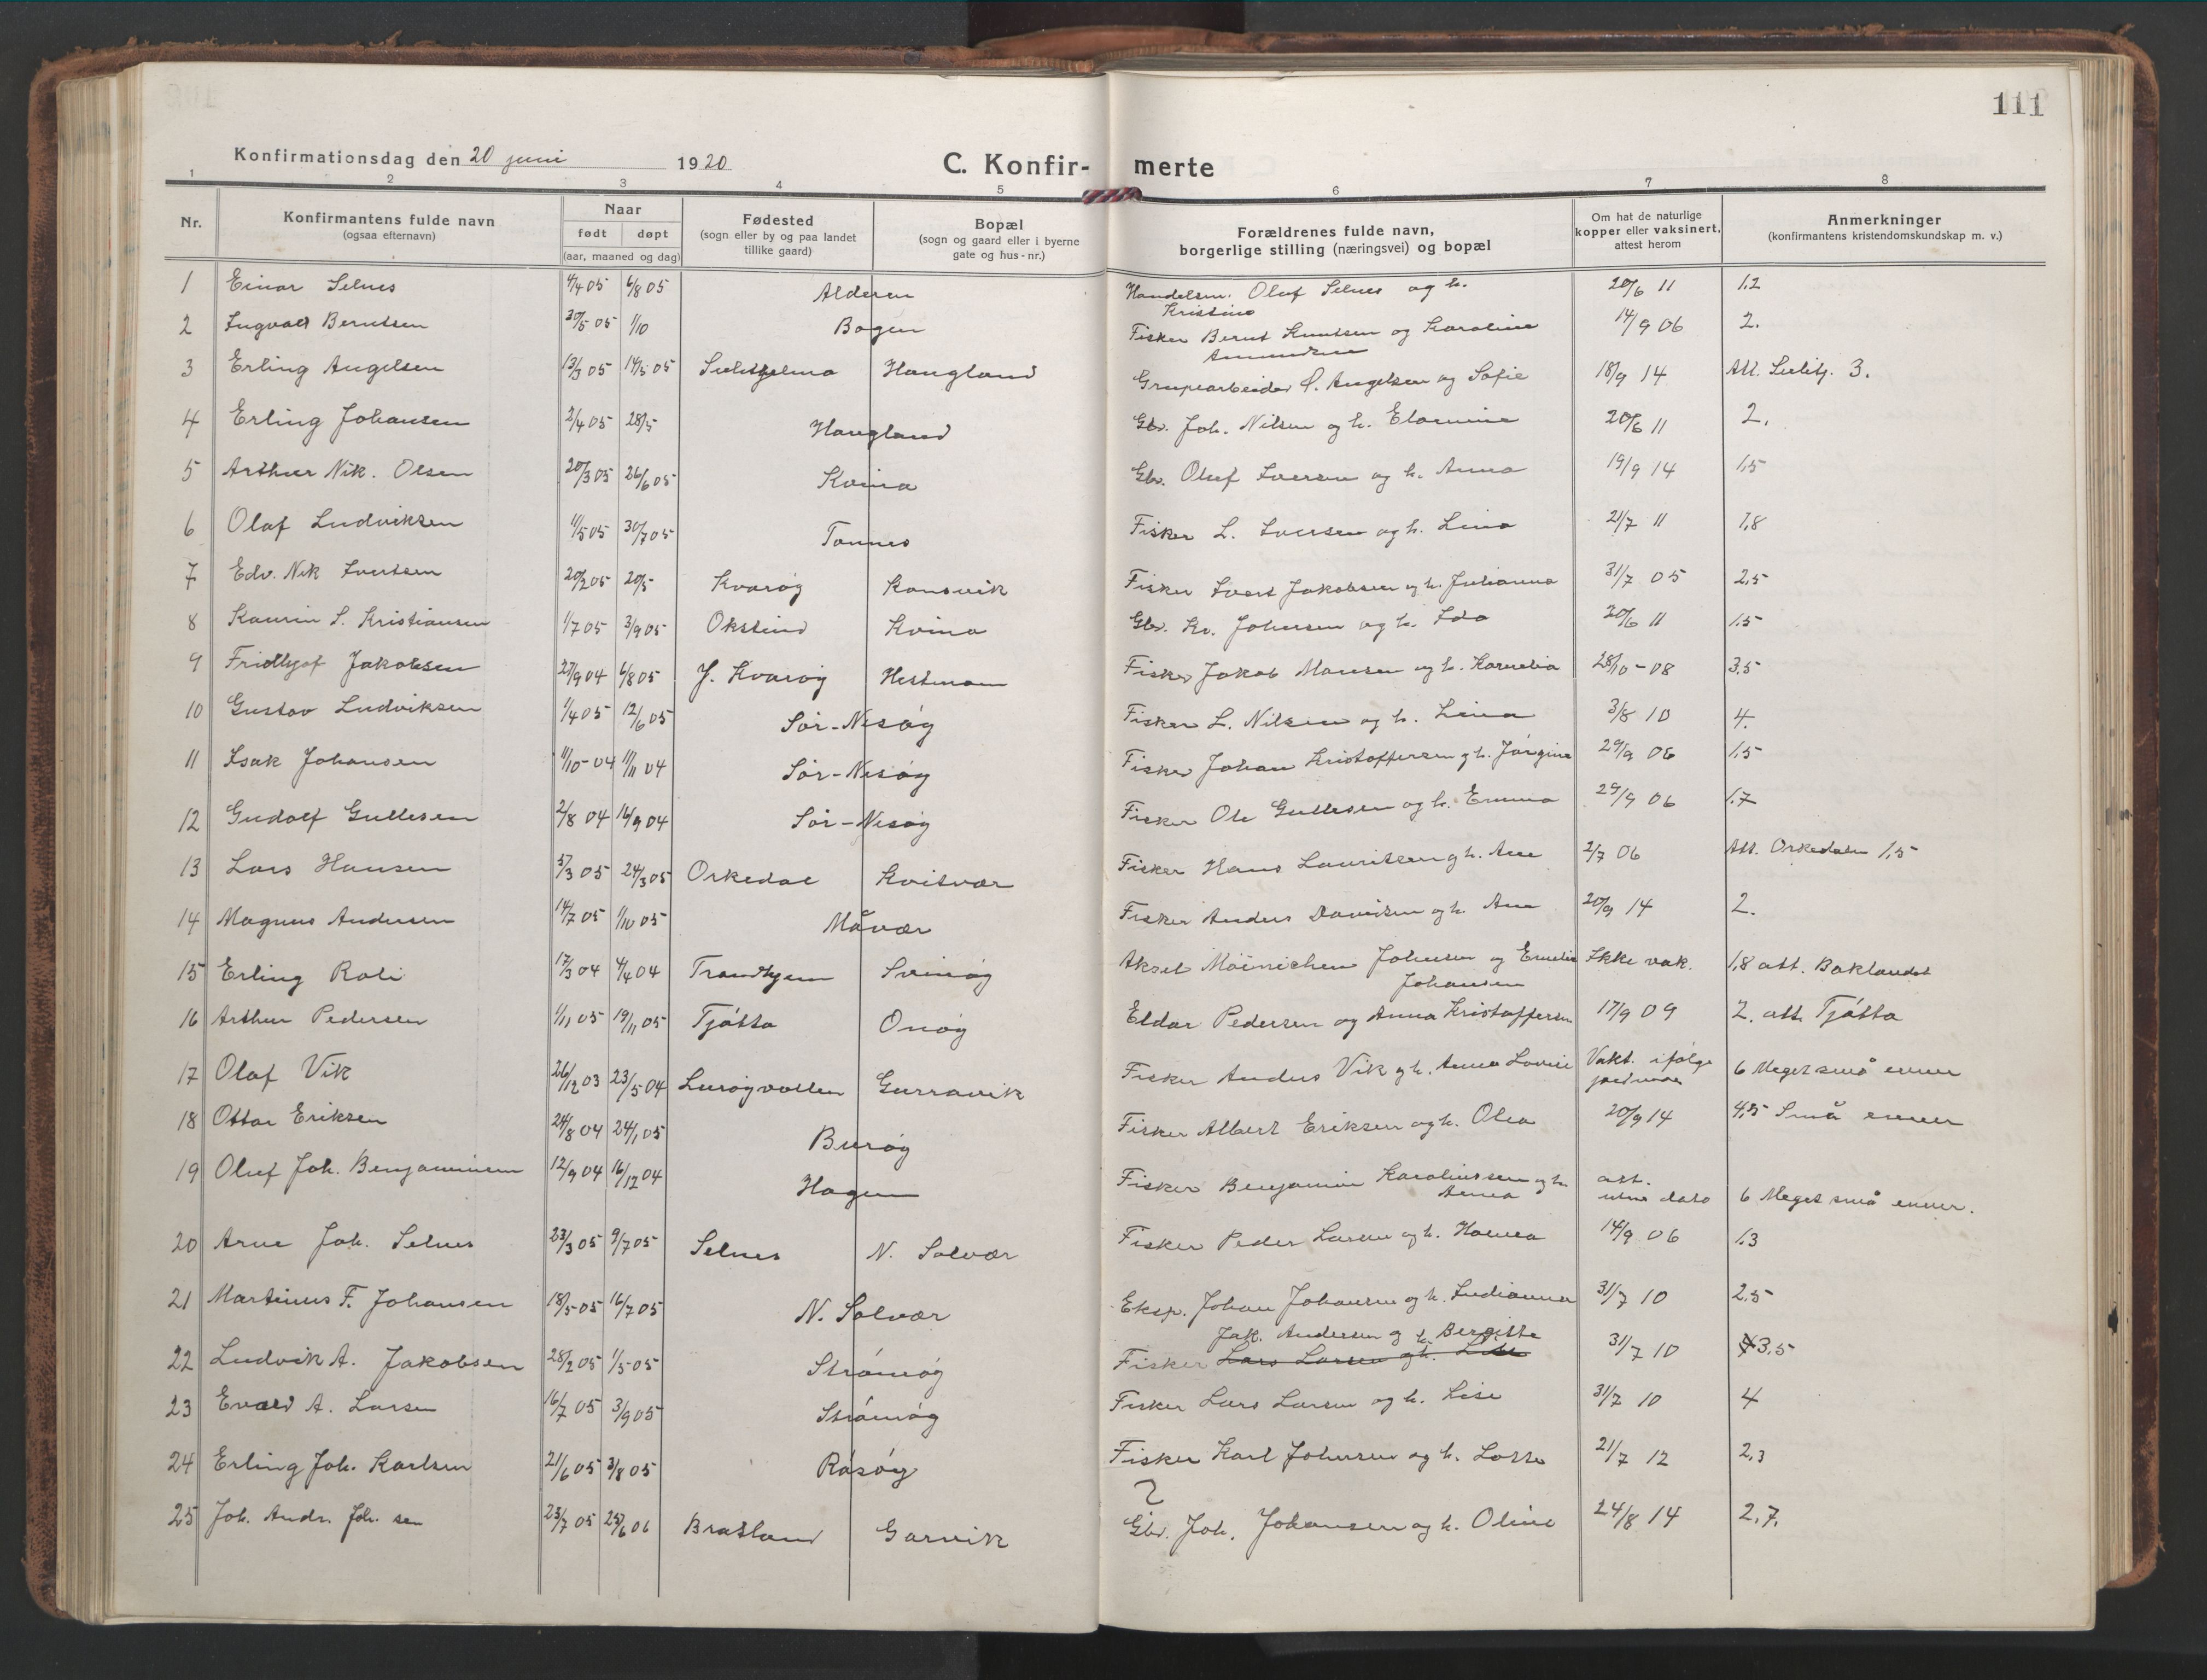 111
Konfirmationsdag den 20 juni 1920 C. Konfir- merte
1 2 3 4 5 6 7 8
Nr. Konfirmantens fulde navn (ogsaa efternavn) Naar født døpt (aar, maaned og dag) Fødested (sogn eller by og paa landet tillike gaard) Bopæl (sogn og gaard eller i byerne gate og hus-nr.) Forældrenes fulde navn, borgerlige stilling (næringsvei) og bopæl Om hat de naturlige kopper eller vaksinert, attest herom Anmerkninger (konfirmantens kristendomskundskap m. v.)
1 Einar Selnes 4/4 05 6/8 05 Alderen Handelsm. Oluf Selnes og h. Kristine 20/6 11 1,2
2 Ingvald Berntsen 30/5 05 1/10 Bogen Fisker Bernt Knutsen og Karoline Amundsen 14/9 06 2.
3 Erling Angelsen 13/3 05 14/5 05 Sulitjelma Haugland Grupearbeider O. Angelsen og Sofie 18/9 14 Att. Sulitj. 3.
4 Erling Johansen 2/4 05 28/5 Haugland Gbr. Joh. Nilsen og h. Elomine 20/6 11 2.
5 Arthur Nik. Olsen 20/3 05 26/6 05 Kvina Gbr. Oluf Iversen og h. Anna 19/9 14 1,5
6 Olaf Ludviksen 11/5 05 30/7 05 Tonnes Fisker L. Iversen og h. Lina 21/7 11 1,8
7 Edv. Nik Ivertsen 20/2 05 20/5 Kvarøy Konsvik Fisker Ivert Jakobsen og h. Julianna 31/7 05 2,5
8 Kaurin S. Kristiansen 1/7 05 3/9 05 Okstind Kvina Gbr. Kr. Johnsen og h. Ida 20/6 11 1,5
9 Fridtjof Jakobsen 27/9 04 6/8 05 J. Kvarøy Hestmann Fisker Jakob Monsen og h. Kornelia 28/10-08 3,5
10 Gustav Ludviksen 1/4 05 12/6 05 Sør-Nesøy Fisker L. Nilsen og h. Lina 3/8 10 4.
11 Isak Johansen 11/10-04 11/11 04 Sør-Nesøy Fisker Johan Kristoffersen og h. Jørgine 29/9 06 1,5
12 Gudolf Gullesen 2/8 04 16/9 04 Sør-Nesøy Fisker Ole Gullesen og h. Emma 29/9 06 1,7
13 Lars Hansen 5/3 05 24/3 05 Orkedal Kvitvær Fisker Hans Lauritsen og h. Ane 2/7 06 Att. Orkedalen 1,5
14 Magnus Andersen 14/7 05 1/10 05 Måvær Fisker Anders Davidsen og h. Ane 20/9 14 2.
15 Erling Roli 17/3 04 4/4 04 Trondhjem Svinøy Aksel Møinichen Johnsen og Emelie Johansen Ikke vak. 1,8 att. Baklandet
16 Arthur Pedersen 1/11 05 19/11 05 Tjøtta Onøy Eldar Pedersen og Anna Kristoffersen 17/9 09 2. att. Tjøtta
17 Olaf Vik 26/12 03 23/5 04 Lurøyvollen Gurravik Fisker Anders Vik og h. Anna Lovise Vakt. ifølge 6 Meget små evner
18 Ottar Eriksen 24/8 04 24/1 05 Burøy Fisker Albert Eriksen og h. Olea 20/9 14 4,5 Små evner
19 Oluf Joh. Benjaminsen 12/9 04 16/12 04 Hagen Fisker Benjamin Karoliussen og h. Anna att. uten dato 6 Meget små evner.
20 Arne Joh. Selnes 23/3 05 9/7 05 Selnes N. Solvær Fisker Peder Larsen og h. Hanna 14/9 06 1,3
21 Martinus F. Johansen 18/5-05 16/7 05 N. Solvær Eksp. Johan Johansen og h. Indianna 31/7 10 2,5
22 Ludvik A. Jakobsen 28/2 05 1/5-05 Strømøy Fisker Lars Larsen og h. Lise Jak. Andersen og h. Bergitte 31/7 10 4 3,5
23 Evald A. Larsen 16/7 05 3/9 05 Strømøy Fisker Lars Larsen og h. Lise 31/7 10 4
24 Erling Joh. Karlsen 21/6 05 3/8 05 Råsøy Fisker Karl Johnsen og h. Lotte 21/7 12 2,3
25 Joh. Andr. Joh. sen 23/7 05 25/6 06 Bratland Garvik ? Gbr. Joh. Johansen og h. Oline 24/8 14 2,7.